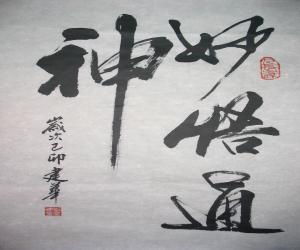 妙悟通
神
歲次己卯建華